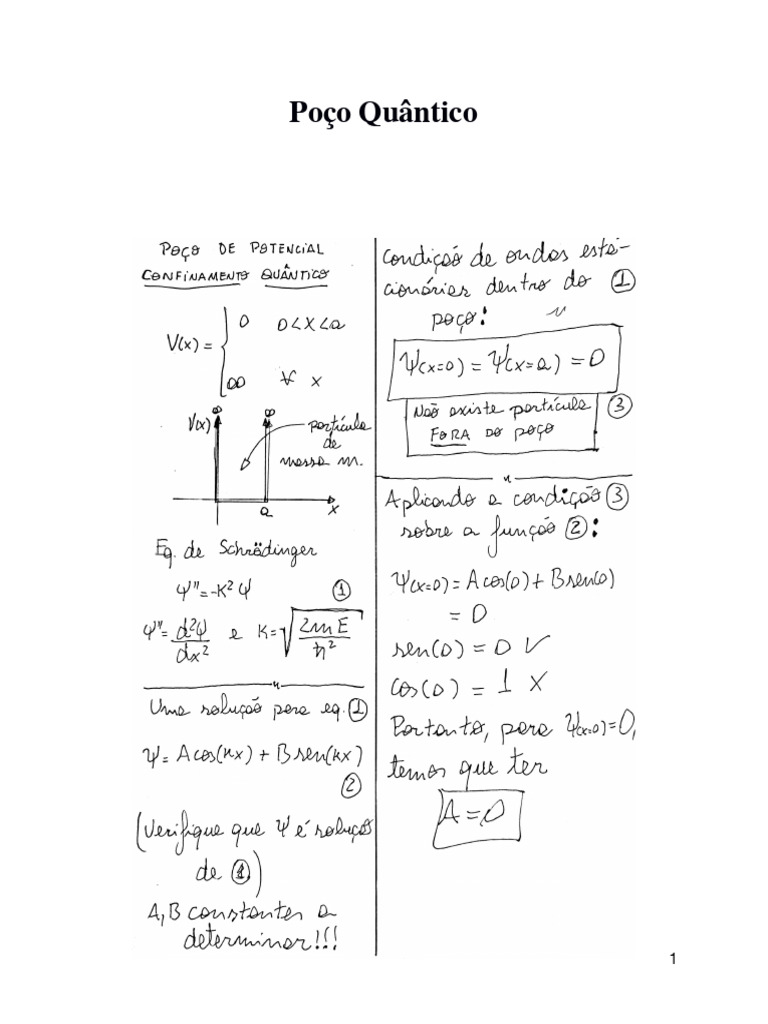 Poço Quântico
POÇO DE POTENCIAL
CONFINAMENTO QUÂNTICO
V(x) = { 0 0<X<a
∞ ∀ x
∞ ∞
V(x)
partícula
de
massa m.
a x
Eq. de Schrödinger
Ψ'' = -K² Ψ ①
Ψ'' = d²Ψ/dx² e K = √(2mE/ħ²)
Uma solução para eq. ①
Ψ = A cos(kx) + B sen(kx)
②
(Verifique que Ψ é solução
de ①)
A, B constantes a
determinar!!!
Condição de ondas esta-
cionárias dentro do ①
poço:
Ψ(x=0) = Ψ(x=a) = 0
Não existe partícula ③
FORA do poço
Aplicando a condição ③
sobre a função ②:
Ψ(x=0) = A cos(0) + B sen(0)
= 0
sen(0) = 0 V
cos(0) = 1 X
Portanto, para Ψ(x=0) = 0,
temos que ter
A = 0
1